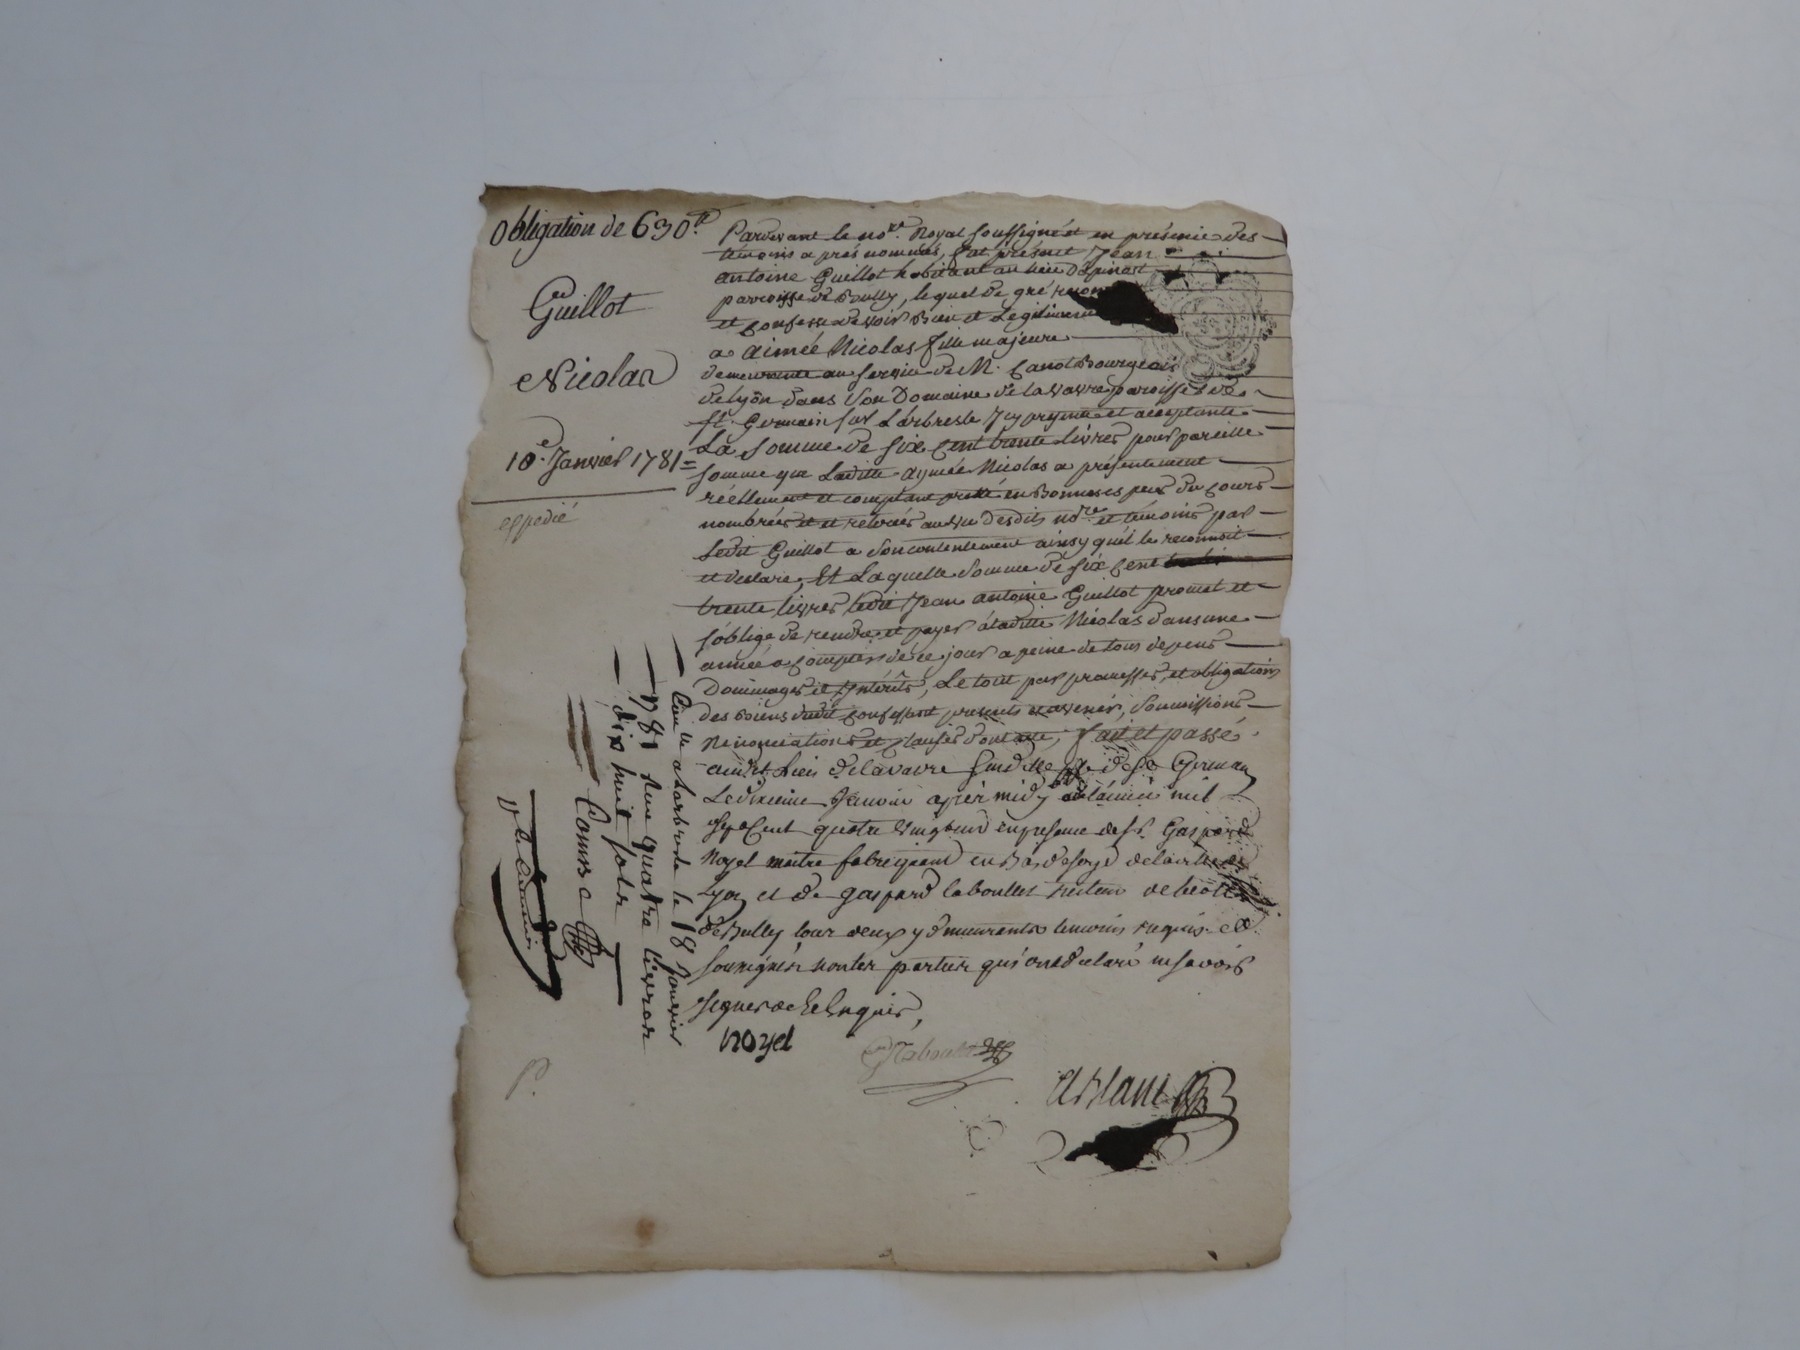 Obligation de 630 tt.
Guillot
Nicolas
10e. Janvier 1781
expedié
Pardevant le nore. Royal soussigné et en présence des
témoins après nommés, fut présent Jean
antoine Guillot habitant au lieu d'Apinost
parroisse de Bully, lequel de gré
et confesse devoir Bien et Légitimem
a aimée Nicolas fille majeure
demeurante au service de M. Bourgeois
de Lyon dans son Domaine de la vavre paroisse de
St. Germain sur L'arbresle Icy présente et acceptante
La somme de six cent trente Livres pour pareille
somme que Laditte aymée Nicolas a présentement
réellement et comptant pretté en Bonnes espèces du cours
nombrées et retirées au vu desdits nore et témoins par
Ledit Guillot a son contentement ainsy qu'il le reconnoit
et declare, Et Laquelle somme de six cent
trente livres ledit Jean antoine Guillot promet et
s'oblige de rendre et payer à laditte Nicolas dans une
année a compter de ce jour a peine de tous depens
Dommages et Intérêts, Le tout par promesses, et obligations
des Biens dudit confessant presents et avenir, soumissions
Renonciations et clauses dont acte, fait et passé
audit Lieu de Lavavre susdite de St German
Le dixieme Janvier après midy mil
sept Cent quatre vingt un en presence de sr. Gaspard
Noyel maitre fabriquant en Bas de soye de la ville de
Lyon et de gaspard laboulet recteur
de Bully tour deux y demeurants temoins requis et
soussignés non les parties qui ont declaré ne savoir
signer de ce Enquis,
noyel
arnani
Con le a Larbresle le 18 Janvier
1781 Recu quatre livres
dix huit sols
P.